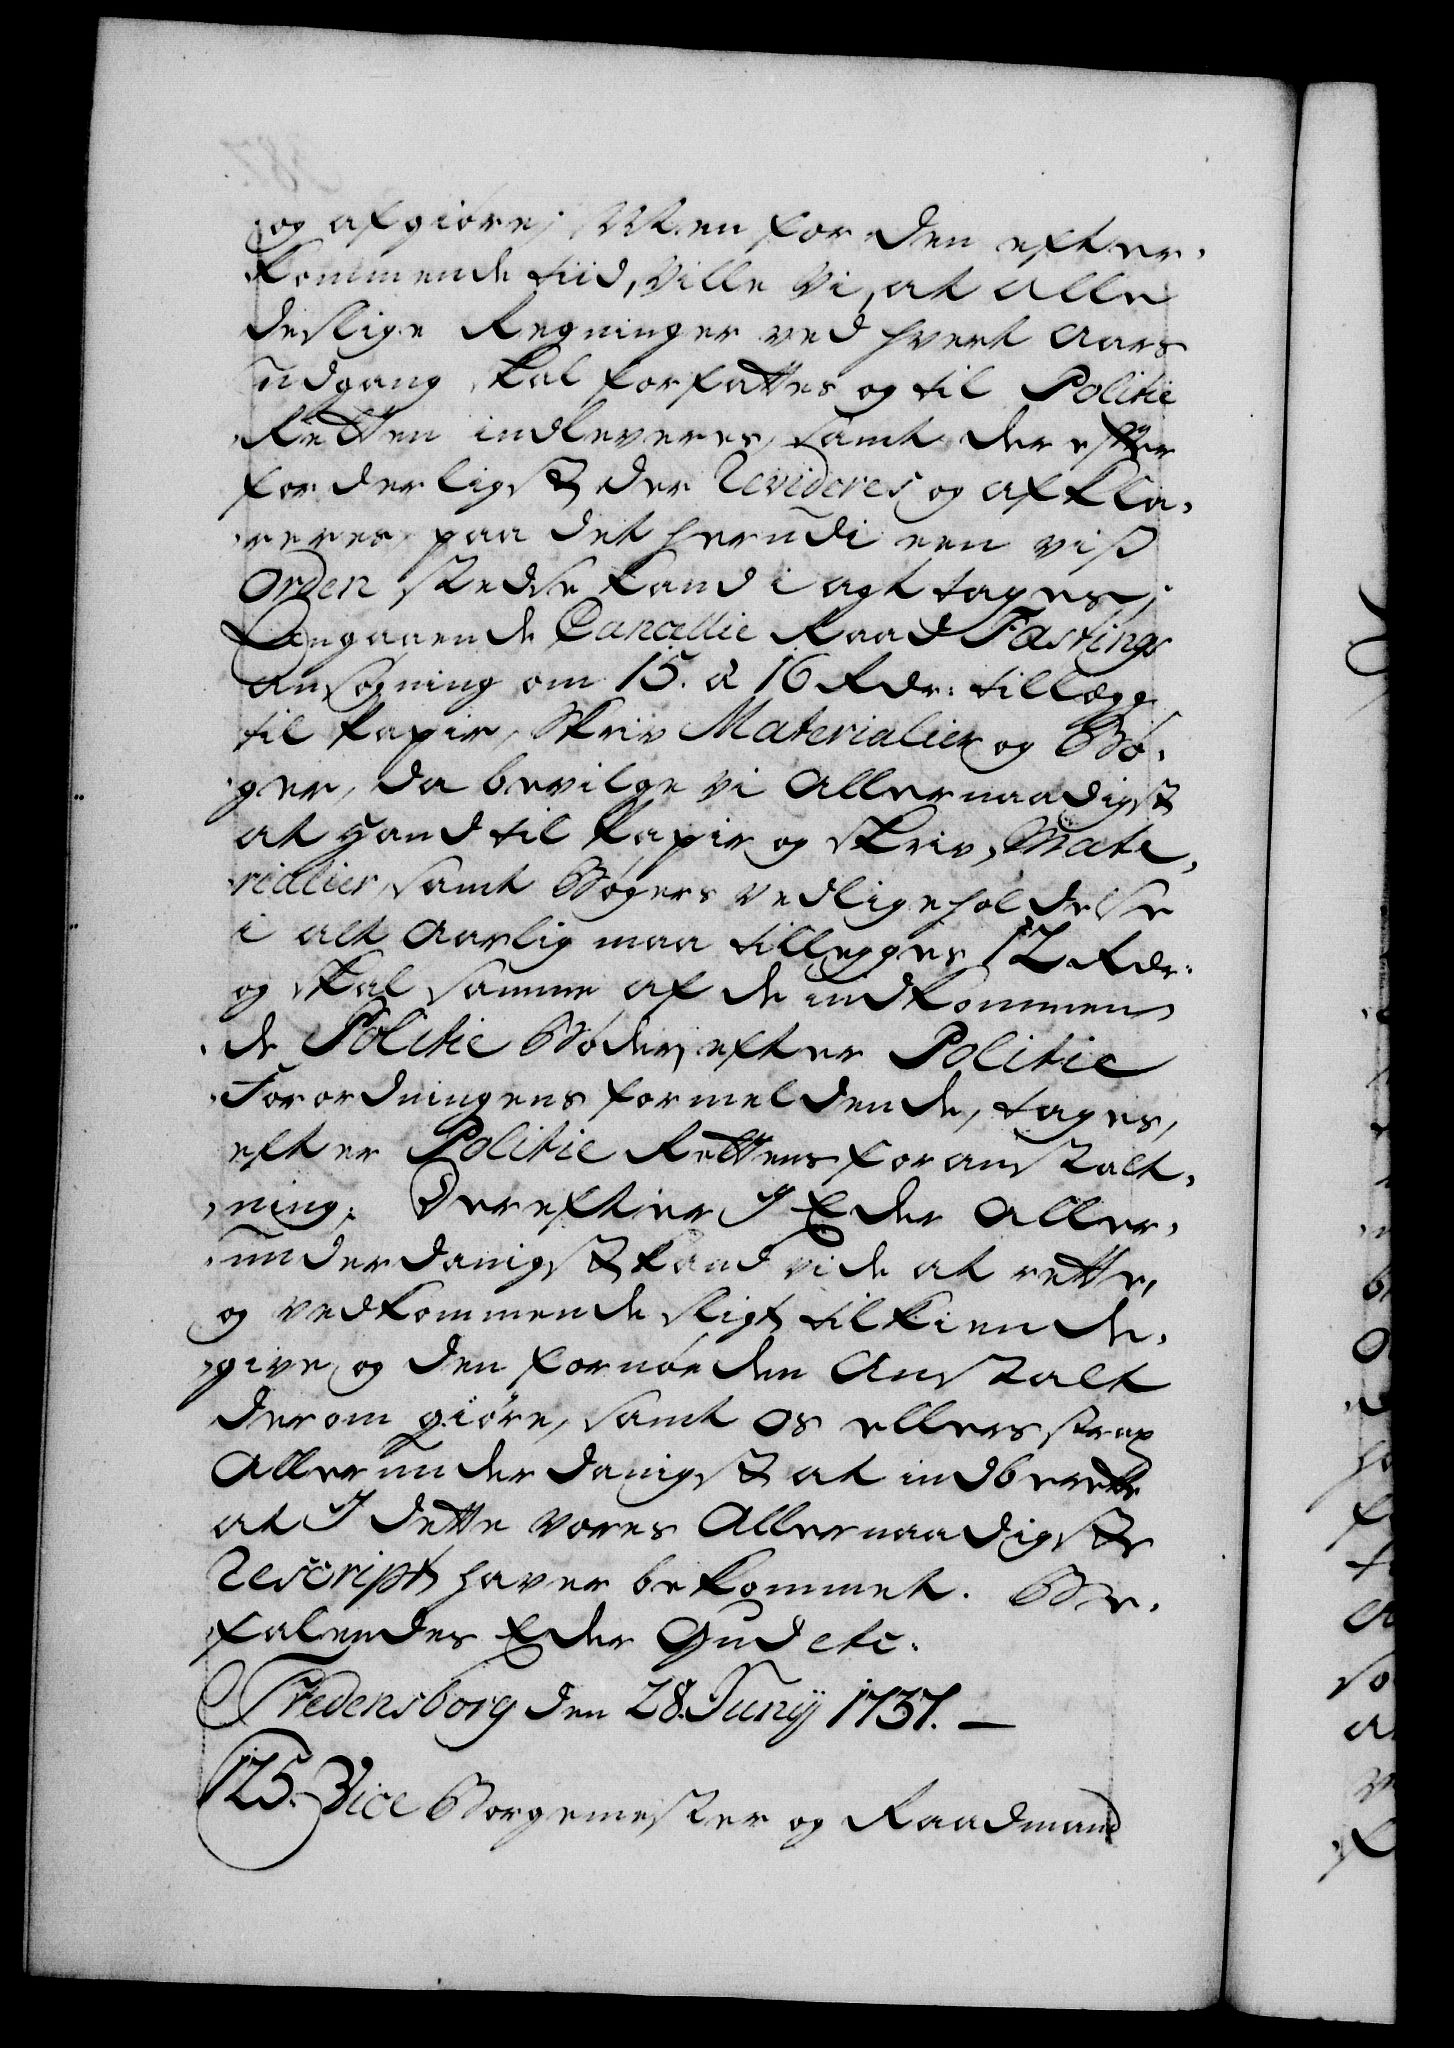 og afgiøre; Men for den efter-
kommende tiid, ville Vi, at alle
deslige Regninger ved hvert Aars
udgang skal forfattes og til Politie
Retten indleveres, samt der efter
forderligst der Revideres og afkla-
reres, paa det herudi een viß
Orden stedse kand i agt tages;
Angaaende Cancellie Raad Fastings
ansøgning om 15. à 16 Rdr: tillæg
til Papir, Skriv Materialier og Bø-
ger, da bevilge Vi Allernaadigst
at hand til Papir og Skriv-Mate-
rialier, samt Bøgers vedligeholdelse
i alt Aarlig maa tillegges 12 Rdr:
og skal samme af de indkommen-
de Politie Bøder, efter Politie
Forordningens formeldende, tages,
efter Politie Rettens foranstalt-
ning. Derefter I Eder Aller-
underdanigst kand vide at rette,
og vedkommende sligt tilkiende-
give, og den fornøden Anstalt
derom giøre, samt Os ellers strax
Allerunderdanigst at indberette
at I dette Vores Allernaadigste
Rescript haver bekommet. Be-
falendes Eder Gud etc.
Fredensborg den 28. Junij 1737. —
125. Vice Borgemester og Raadmand